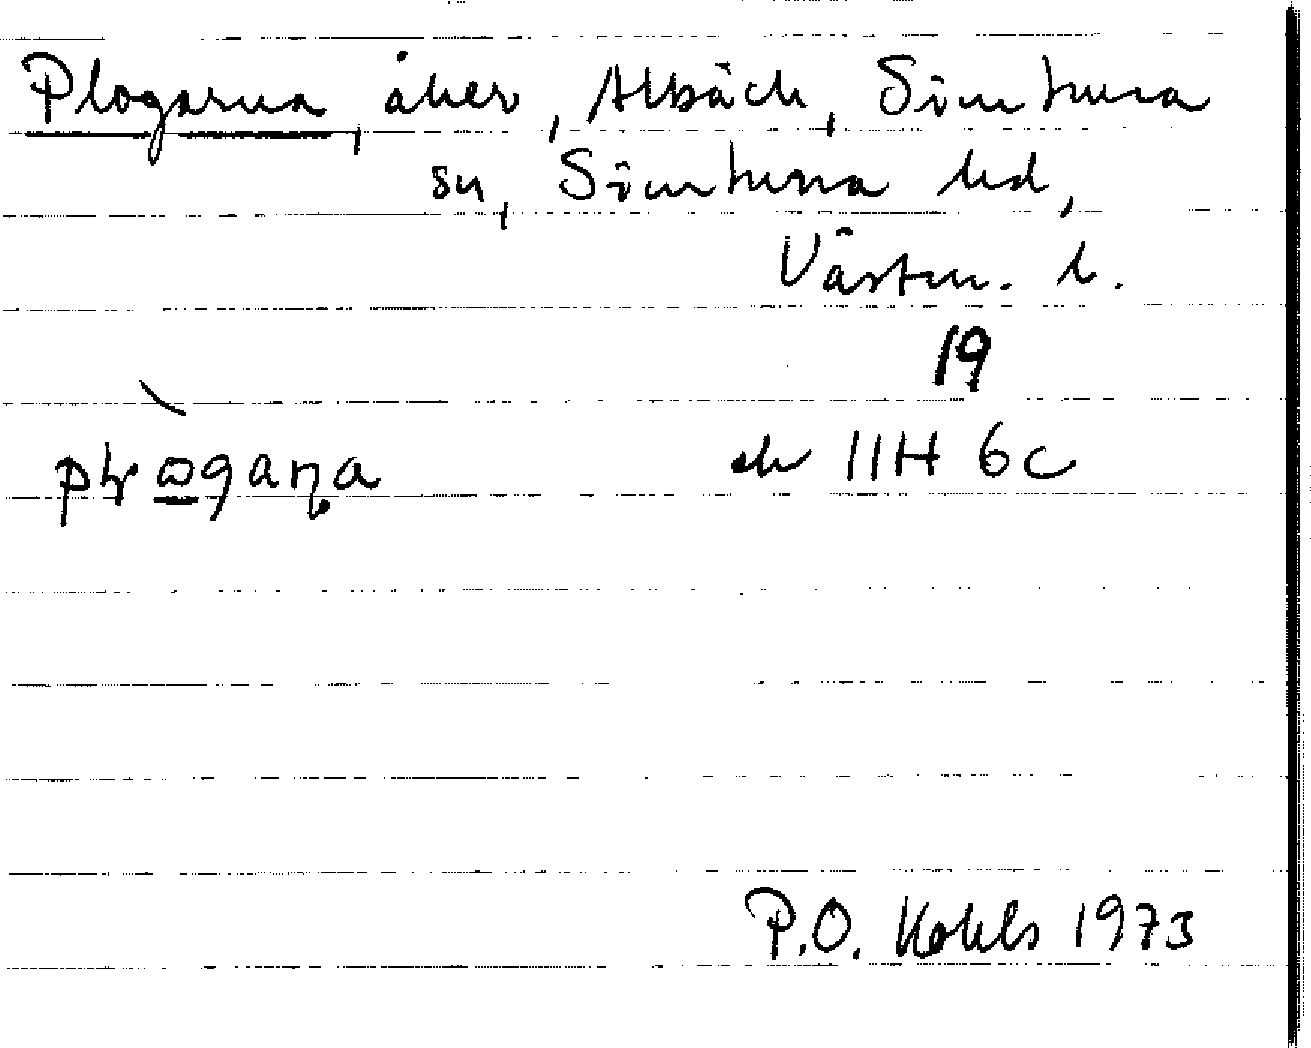 Plogarna, åker, Albäck, Simtuna
sn, Simtuna hd,
Västm. l.
19
ek 11H 6c
P.O. Kohls 1973